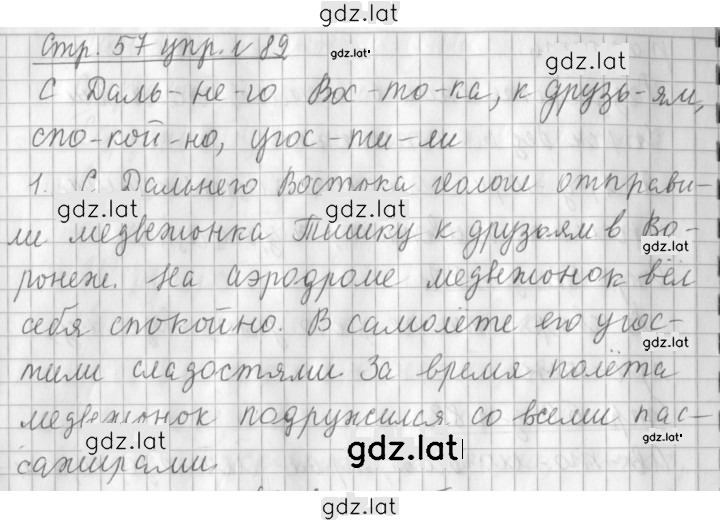 gdz.lat
Стр. 57 упр. 89
gdz.lat
gdz.lat
С Даль-не-го Вос-то-ка, к друзь-ям,
спо-кой-но, угос-ти-ли
1. С Дальнего Востока геологи отправи-
gdz.lat
gdz.lat
ли медвежонка Тишку к друзьям в Во-
gdz.lat
ронеж. На аэродроме медвежонок вёл
gdz.lat
себя спокойно. В самолёте его угос-
gdz.lat
тили сладостями. За время полёта
медвежонок подружился со всеми пас-
gdz.lat
gdz.lat
gdz.lat
сажирами.
gdz.lat